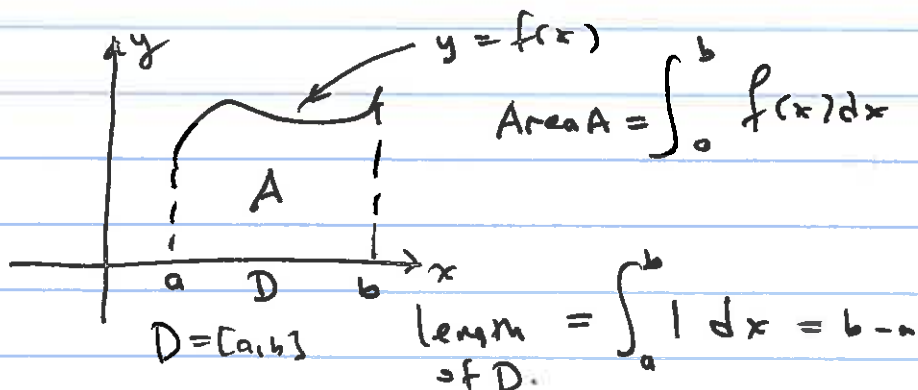 y
y = f(x)
Area A = ∫_a^b f(x) dx
A
a D b x
D = [a, b]
length of D. = ∫_a^b 1 dx = b - a